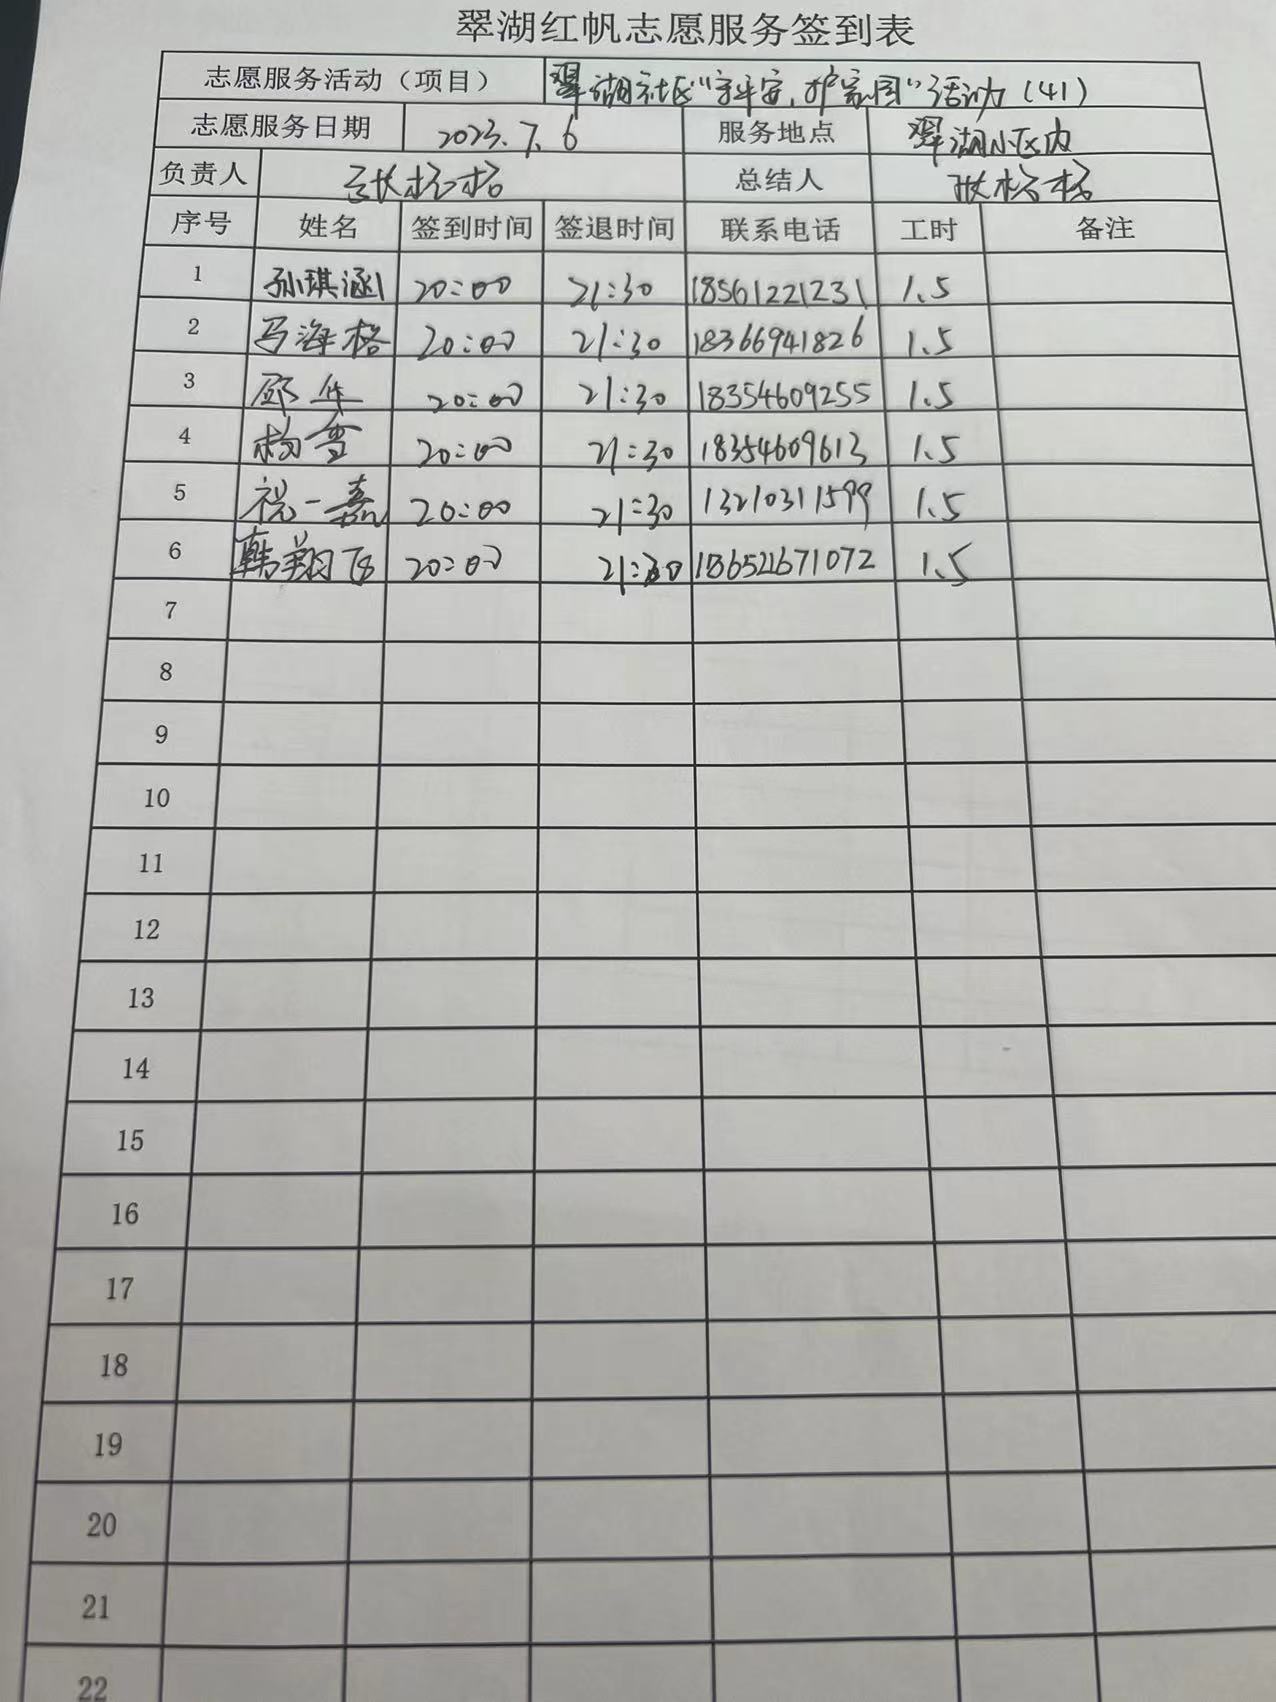 翠湖红帆志愿服务签到表
志愿服务活动（项目） 翠湖社区“守平安，护家园”活动（41）
志愿服务日期 2023.7.6 服务地点 翠湖小区内
负责人 张杨格 总结人 张杨格
序号 姓名 签到时间 签退时间 联系电话 工时 备注
1 孙琪涵 20:00 21:30 18561221231 1.5
2 马海格 20:00 21:30 18366941826 1.5
3 邱华 20:00 21:30 18354609255 1.5
4 杨雪 20:00 21:30 18354609613 1.5
5 祝一嘉 20:00 21:30 13210311599 1.5
6 韩翔飞 20:00 21:30 186521671072 1.5
7
8
9
10
11
12
13
14
15
16
17
18
19
20
21
22